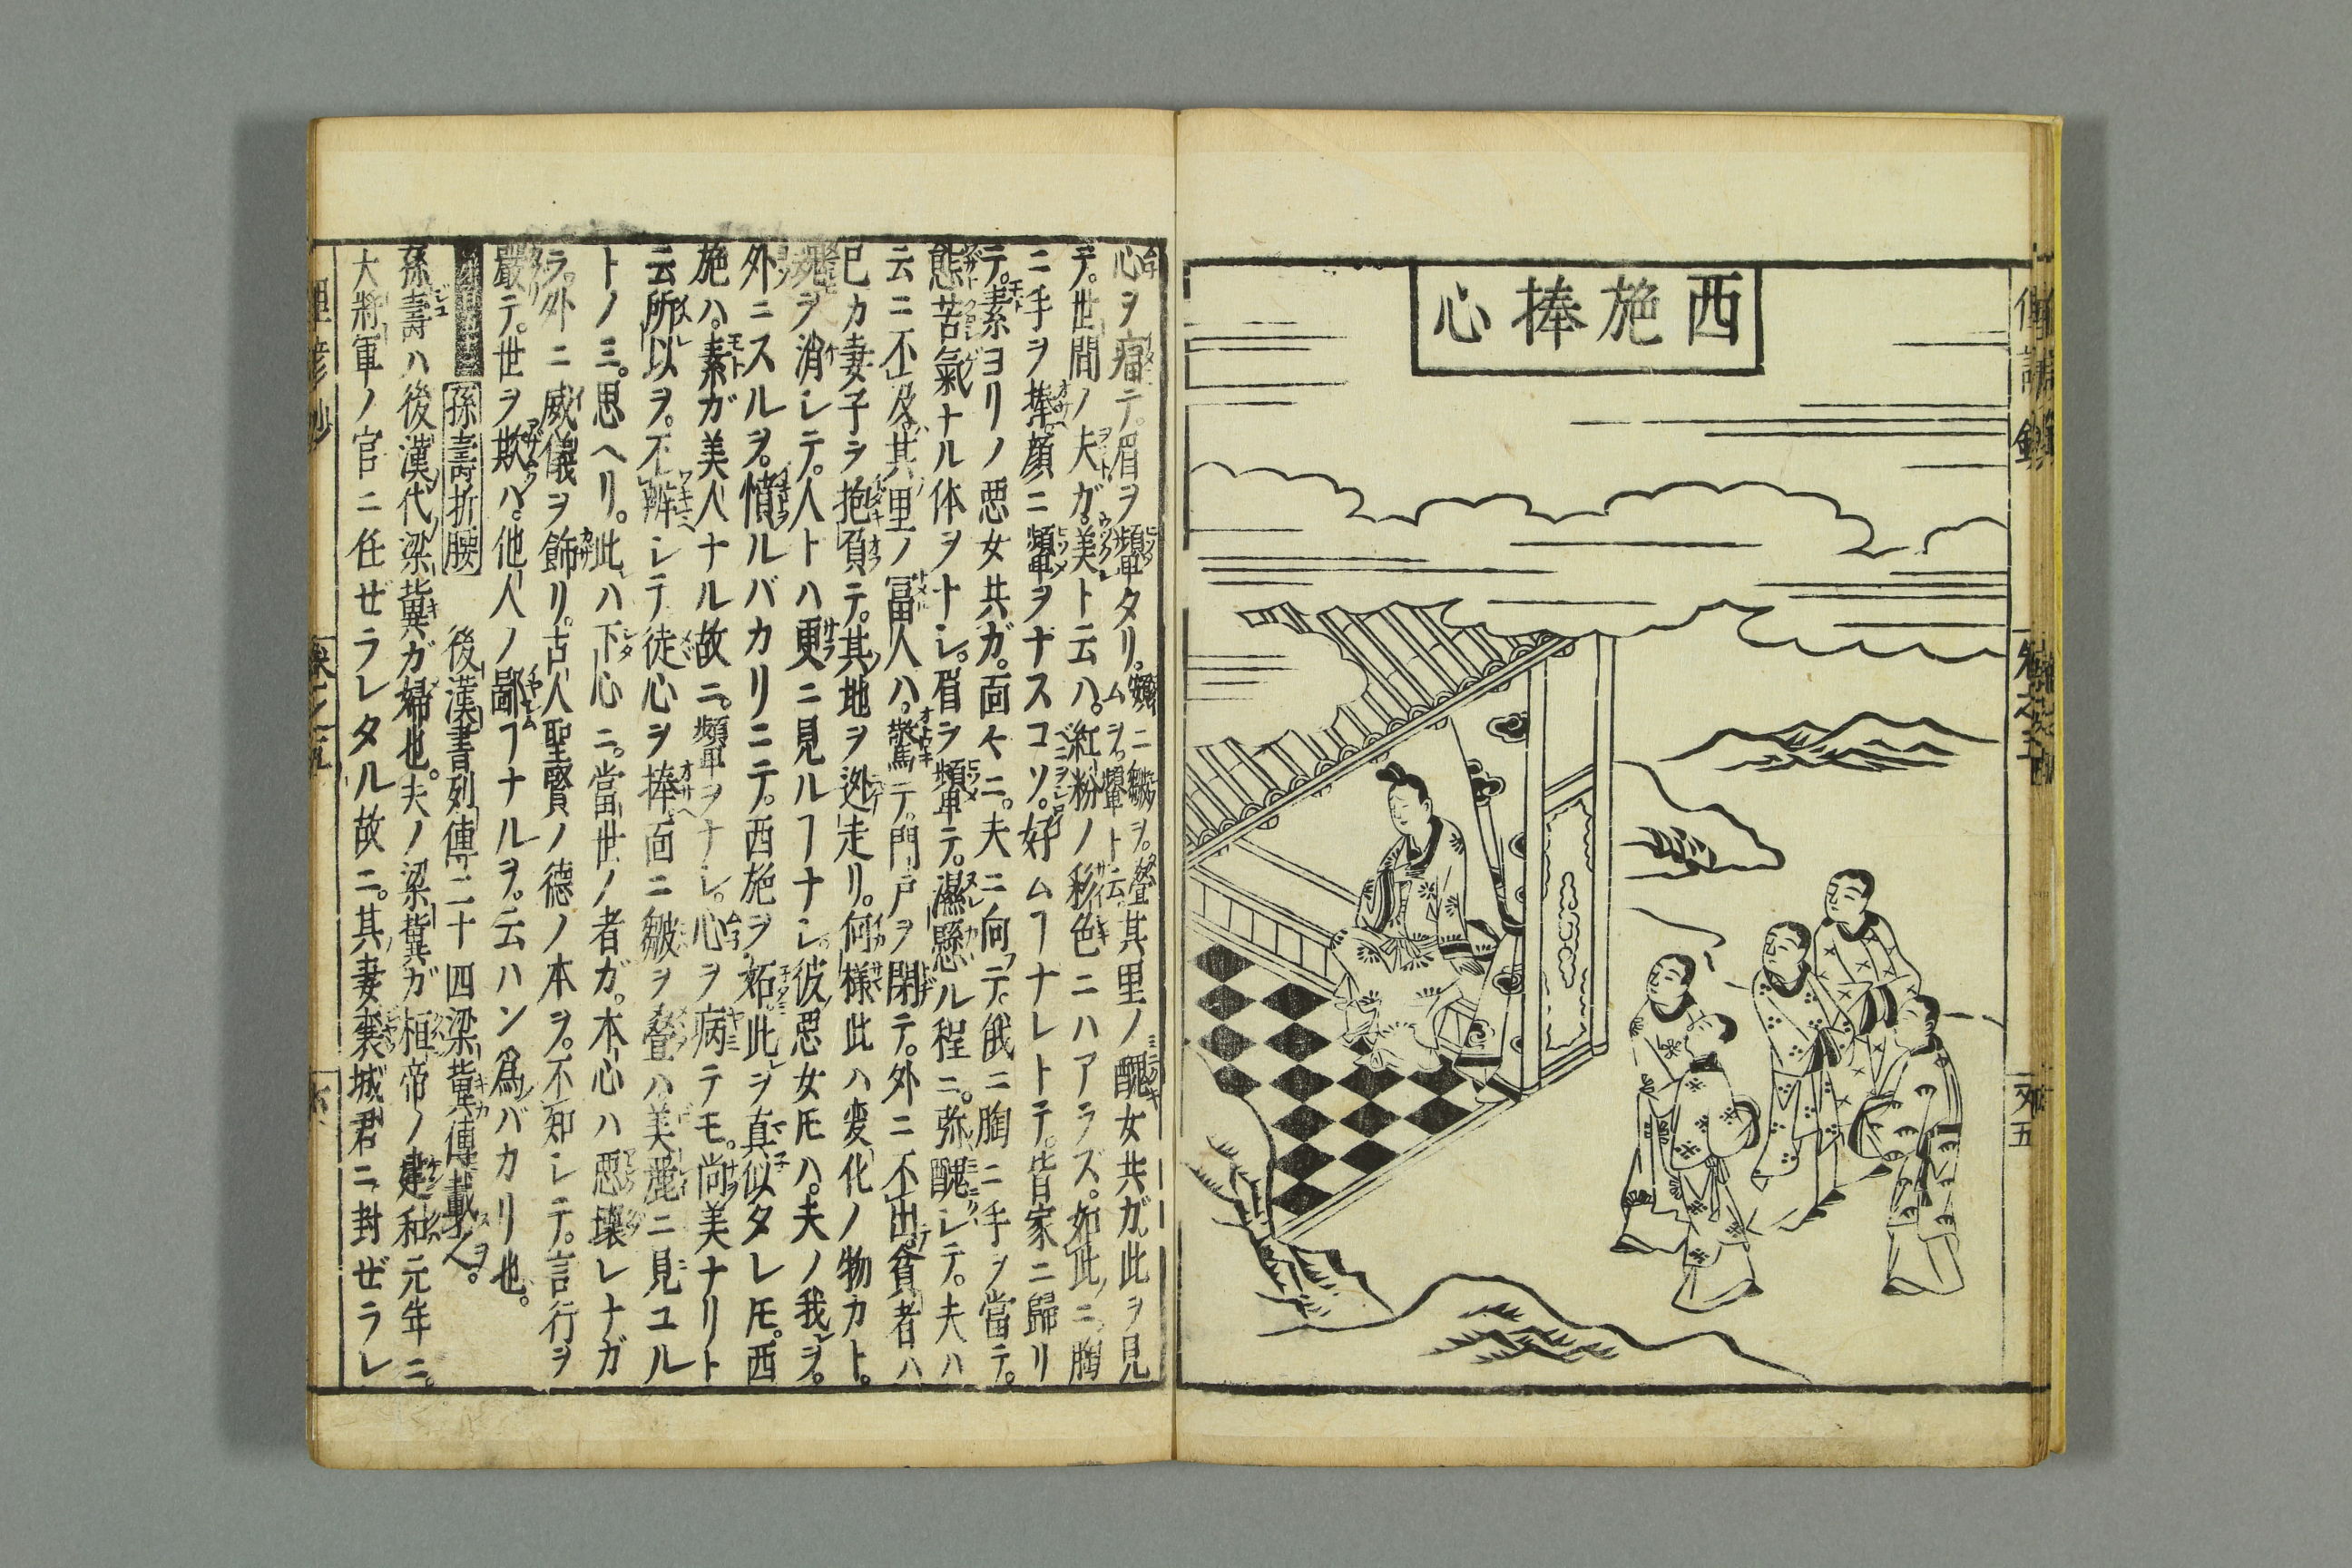 西施捧心
心ヲ痛テ。眉ヲ顰タリ。額ニ皺ヲ。疊ムヲ。顰ト云。其里ノ醜女共ガ。此ヲ見
テ。世間ノ夫ガ。美ト云ハ。紅粉ノ彩色ニハアラズ。如此ニ胸
ニ手ヲ捧。顔ニ顰ヲナスコソ。好ムヿナレトテ。皆家ニ歸リ
テ。素ヨリノ惡女共ガ。面々ニ。夫ニ向テ。俄ニ胸ニ手ヲ當テ。
態苦氣ナル体ヲトレ。眉ヲ顰テ。濕懸ル程ニ。弥醜レテ。夫ハ
云ニ不及。其里ノ冨人ハ。驚テ。門戸ヲ閉テ。外ニ不出。貧者ハ
己カ妻子ヲ抱負テ。其地ヲ迯走リ。何様此ハ変化ノ物カト。
魂ヲ消レテ。人トハ更ニ見ルヿナシ。彼惡女𪜈ハ。夫ノ我ヲ。
外ニスルヲ。憤ルバカリニテ。西施ヲ妬。此ヲ真似タレ𪜈。西
施ハ。素ガ美人ナル故ニ。顰ヲナシ。心ヲ病テモ。尚美ナリト
云所以ヲ。不辨レテ徒心ヲ捧面ニ皺ヲ疊ハ美麗ニ見ユル
トノミ。思ヘリ。此ハ下心ニ。當世ノ者ガ。本心ハ惡壞レナガ
ラ。外ニ威儀ヲ飾リ。古人聖賢ノ德ノ本ヲ。不知レテ。言行ヲ
嚴テ。世ヲ欺ハ。他人ノ鄙ヿナルヲ。云ハン爲バカリ也。
孫壽折腰　後漢書列傳二十四梁冀傳載ス之ヲ。
孫壽ハ後漢代梁冀ガ婦也。夫ノ梁冀ガ桓帝ノ建和元年ニ。
大將軍ノ官ニ任ゼラレタル故ニ。其妻襄城君ニ封ゼラレ